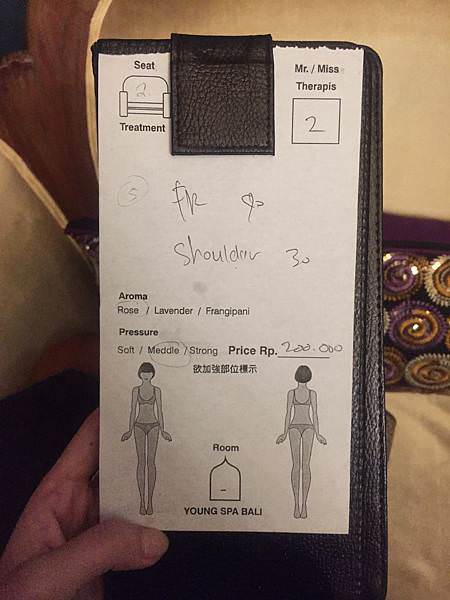 Seat
Mr. / Miss
Therapis
2
2
Treatment
5
FR 90
Shoulder 30
Aroma
Rose / Lavender / Frangipani
Pressure
Soft / Meddle / Strong Price Rp. 200.000
欲加強部位標示
Room
-
YOUNG SPA BALI